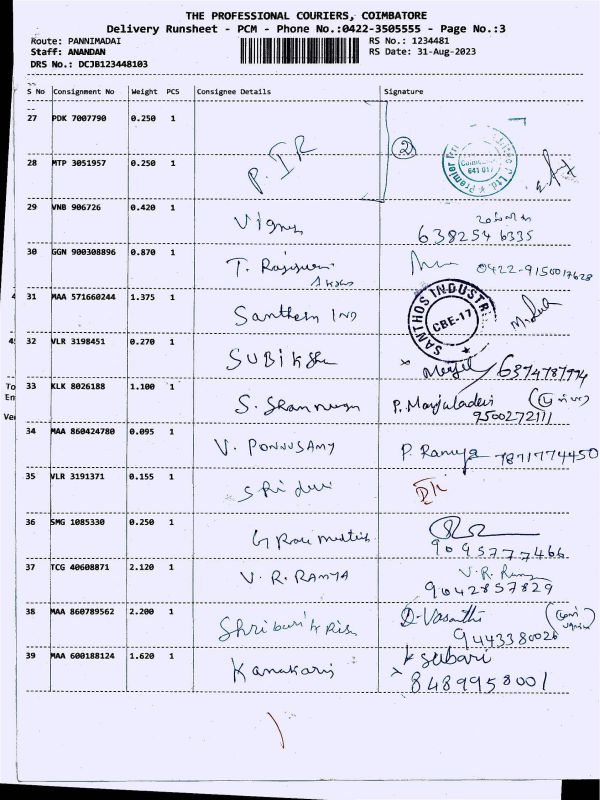 THE PROFESSIONAL COURIERS, COIMBATORE
Delivery Runsheet - PCM - Phone No.:0422-3505555 - Page No.:3
Route: PANNIMADAI
RS No.: 1234481
Staff: ANANDAN
RS Date: 31-Aug-2023
DRS No.: DCJB123448103
S No Consignment No Weight PCS Consignee Details Signature
27 PDK 7007790 0.250 1
28 MTP 3051957 0.250 1 P. IR 2 641 017
29 VNB 906726 0.420 1
638254 6335
30 GGN 900308896 0.870 1 T. 0422-9150017628
4 31 MAA 571660244 1.375 1 Santhosh IND SANTHOS INDUSTR CBE-17
45 32 VLR 3198451 0.270 1 SUBIKSHa 6374787774
To 33 KLK 8026188 1.100 1 S. Shanmugam P. Manjuladevi
En
9500272111
Ver
34 MAA 860424780 0.095 1 V. PONNUSAMY P. Ramya 7871774450
35 VLR 3191371 0.155 1 Sri devi
36 SMG 1085330 0.250 1
9095777466
37 TCG 40608871 2.120 1 V. R. RAMYA V. R. Ramya
9042857829
38 MAA 860789562 2.200 1 D. Vasanthi
9443380026
39 MAA 600188124 1.620 1 K sabari
8489958001